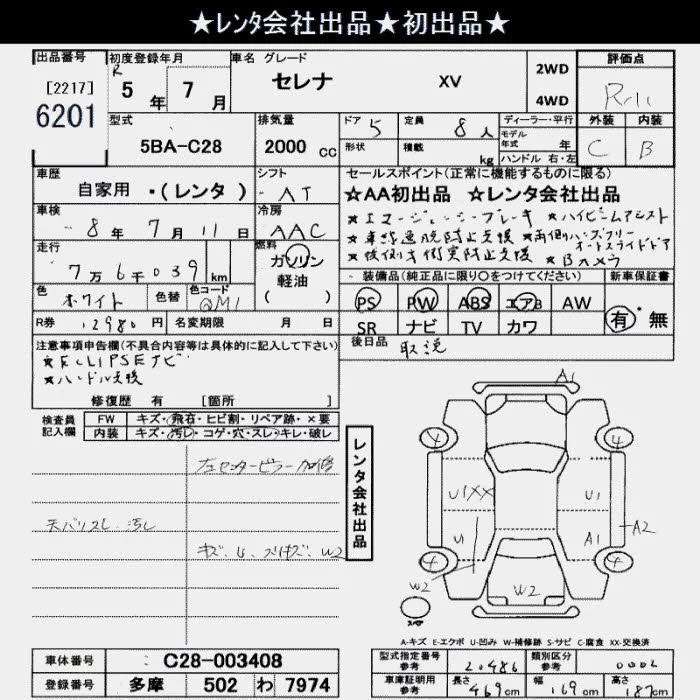 ★レンタ会社出品★初出品★
出品番号
[2217]
6201
初度登録年月
R5年7月
車名 グレード
セレナ XV
2WD
4WD
評価点
型式
5BA-C28
排気量
2000 cc
ドア 5
定員 8人
形状
積載 kg
ディーラー・平行
モデル年式 年
ハンドル 右・左
外装 内装
C B
車歴
自家用 ・(レンタ)
シフト
AT
セールスポイント(正常に機能するものに限る)
☆AA初出品 ☆レンタ会社出品
★エマージェンシーブレーキ ★ハイビームアシスト
★車線逸脱防止支援 ★両側ハンズフリー
オートスライドドア
★後側方衝突防止支援 ★Bカメラ
車検
8年7月11日
冷房
AAC
走行
7万6千039km
燃料
ガソリン
軽油
( )
色
ホワイト
色替
色コード
QM1
装備品(純正品に限り○をつけてください)
新車保証書
PS PW ABS エアB AW
SR ナビ TV カワ
有・無
R券 12980円
名変期限 月 日
後日品
取説
注意事項申告欄(不具合内容等は具体的に記入して下さい)
★ECLIPSEナビ
★ハンドル支援
修復歴 有 [箇所 ]
検査員
記入欄
FW キズ・飛石・ヒビ割・リペア跡・×要
内装 キズ・汚レ・コゲ・穴・スレ・キレ・破レ
左センターピラー加修
天バリスレ、汚し
キズ、U、スリキズ、W2
レンタ会社出品
A1
4 4
U1XX U1
U A1 A2
4 4
W2 W2
スペア
A-キズ E-エクボ U-凹み W-補修跡 S-サビ C-腐食 XX-交換済
車体番号 C28-003408
登録番号 多摩 502 わ 7974
型式指定番号
参考
20486
類別区分
参考
0002
車庫証明用
参考
長さ 469cm
幅 169cm
高さ 187cm